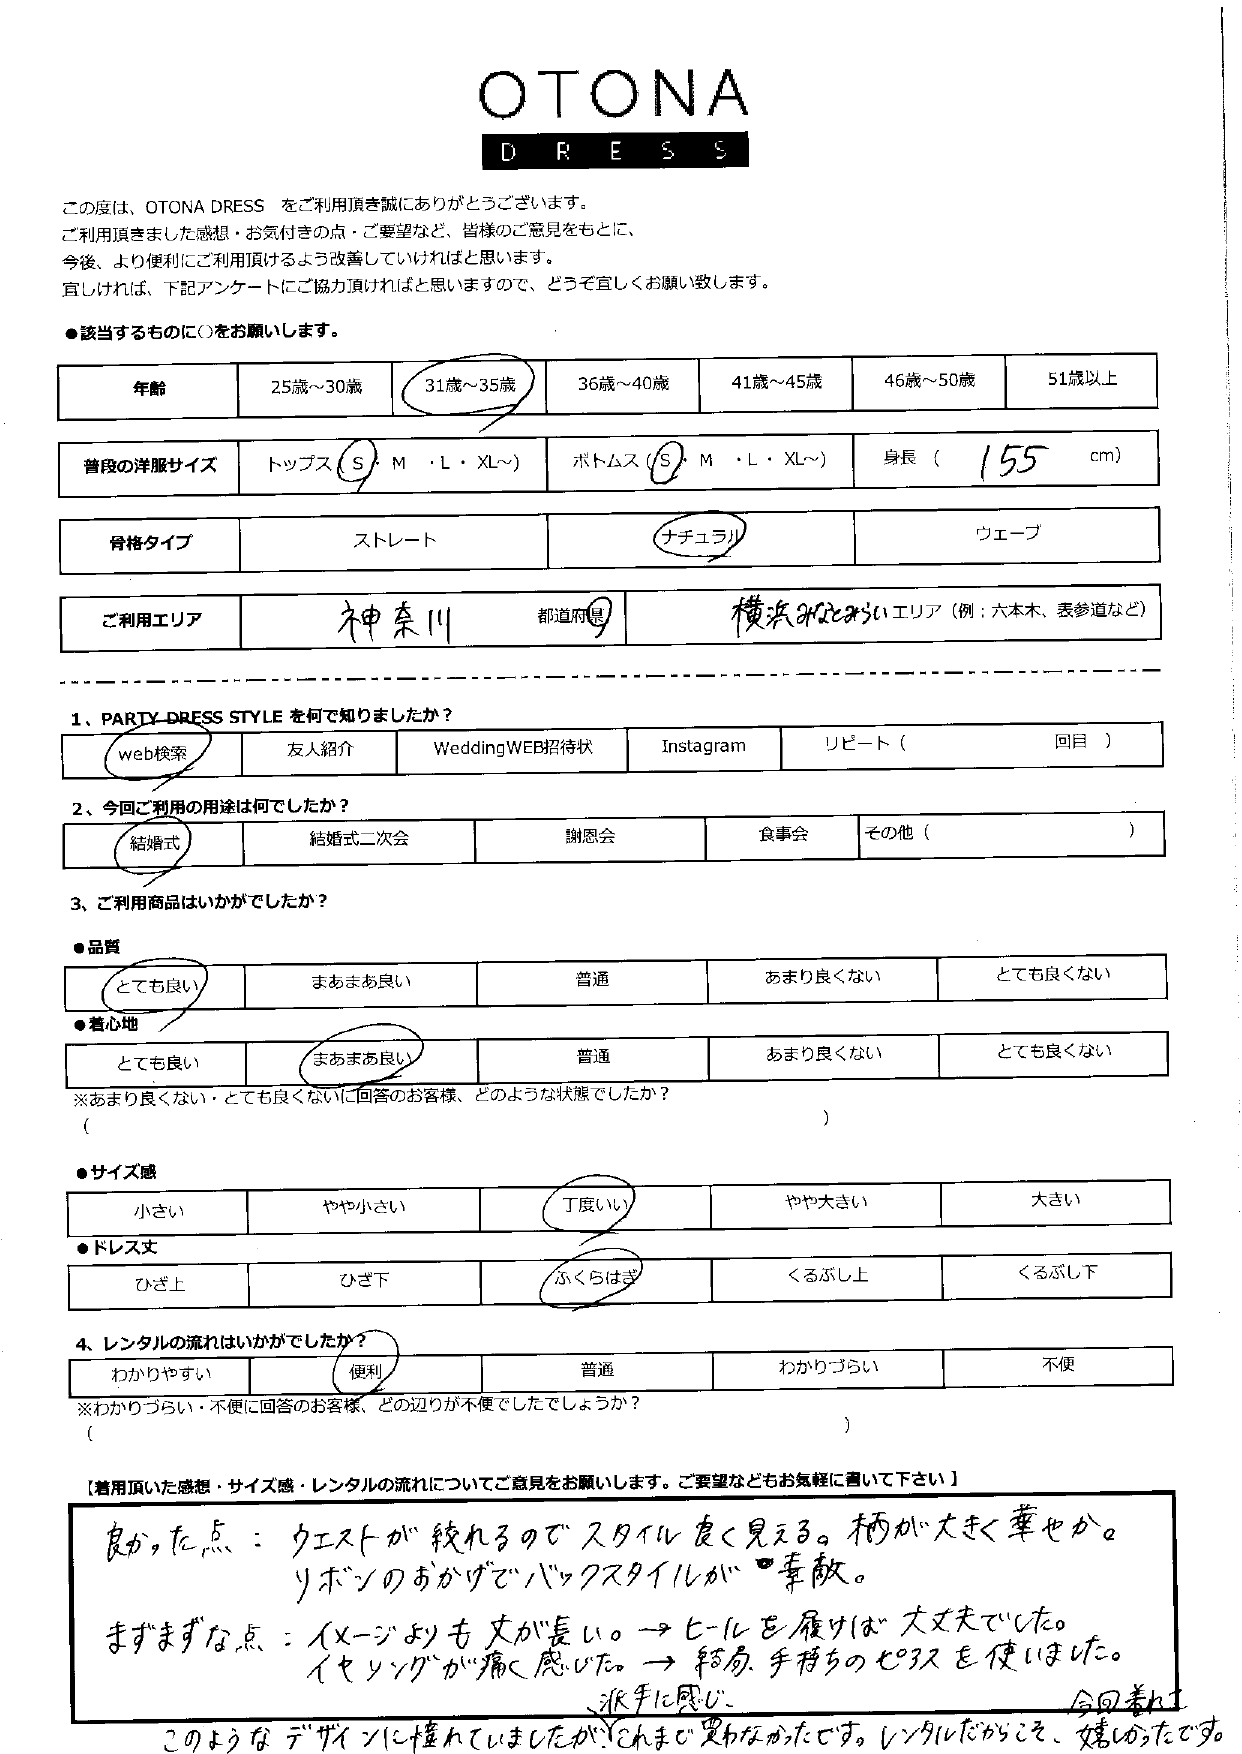 OTONA
DRESS
この度は、OTONA DRESS　をご利用頂き誠にありがとうございます。
ご利用頂きました感想・お気付きの点・ご要望など、皆様のご意見をもとに、
今後、より便利にご利用頂けるよう改善していければと思います。
宜しければ、下記アンケートにご協力頂ければと思いますので、どうぞ宜しくお願い致します。
●該当するものに○をお願いします。
年齢 25歳～30歳 31歳～35歳 36歳～40歳 41歳～45歳 46歳～50歳 51歳以上
普段の洋服サイズ トップス（S・ M ・L・ XL～） ボトムス（S・ M ・L・ XL～） 身長（ 155 cm）
骨格タイプ ストレート ナチュラル ウェーブ
ご利用エリア 神奈川 都道府県 横浜みなとみらいエリア（例；六本木、表参道など）
1、PARTY DRESS STYLE を何で知りましたか？
web検索 友人紹介 WeddingWEB招待状 Instagram リピート（ 回目 ）
2、今回ご利用の用途は何でしたか？
結婚式 結婚式二次会 謝恩会 食事会 その他（ ）
3、ご利用商品はいかがでしたか？
●品質
とても良い まあまあ良い 普通 あまり良くない とても良くない
●着心地
とても良い まあまあ良い 普通 あまり良くない とても良くない
※あまり良くない・とても良くないに回答のお客様、どのような状態でしたか？
（ ）
●サイズ感
小さい やや小さい 丁度いい やや大きい 大きい
●ドレス丈
ひざ上 ひざ下 ふくらはぎ くるぶし上 くるぶし下
4、レンタルの流れはいかがでしたか？
わかりやすい 便利 普通 わかりづらい 不便
※わかりづらい・不便に回答のお客様、どの辺りが不便でしたでしょうか？
（ ）
【着用頂いた感想・サイズ感・レンタルの流れについてご意見をお願いします。ご要望などもお気軽に書いて下さい】
良かった点：ウエストが絞れるのでスタイル良く見える。柄が大きく華やか。
リボンのおかげでバックスタイルが素敵。
まずまずな点：イメージよりも丈が長い。→ヒールを履けば大丈夫でした。
イヤリングが痛く感じた。→結局、手持ちのピアスを使いました。
このようなデザインに憧れていましたが、派手に感じ、これまで買わなかったです。レンタルだからこそ、今回着れて嬉しかったです。